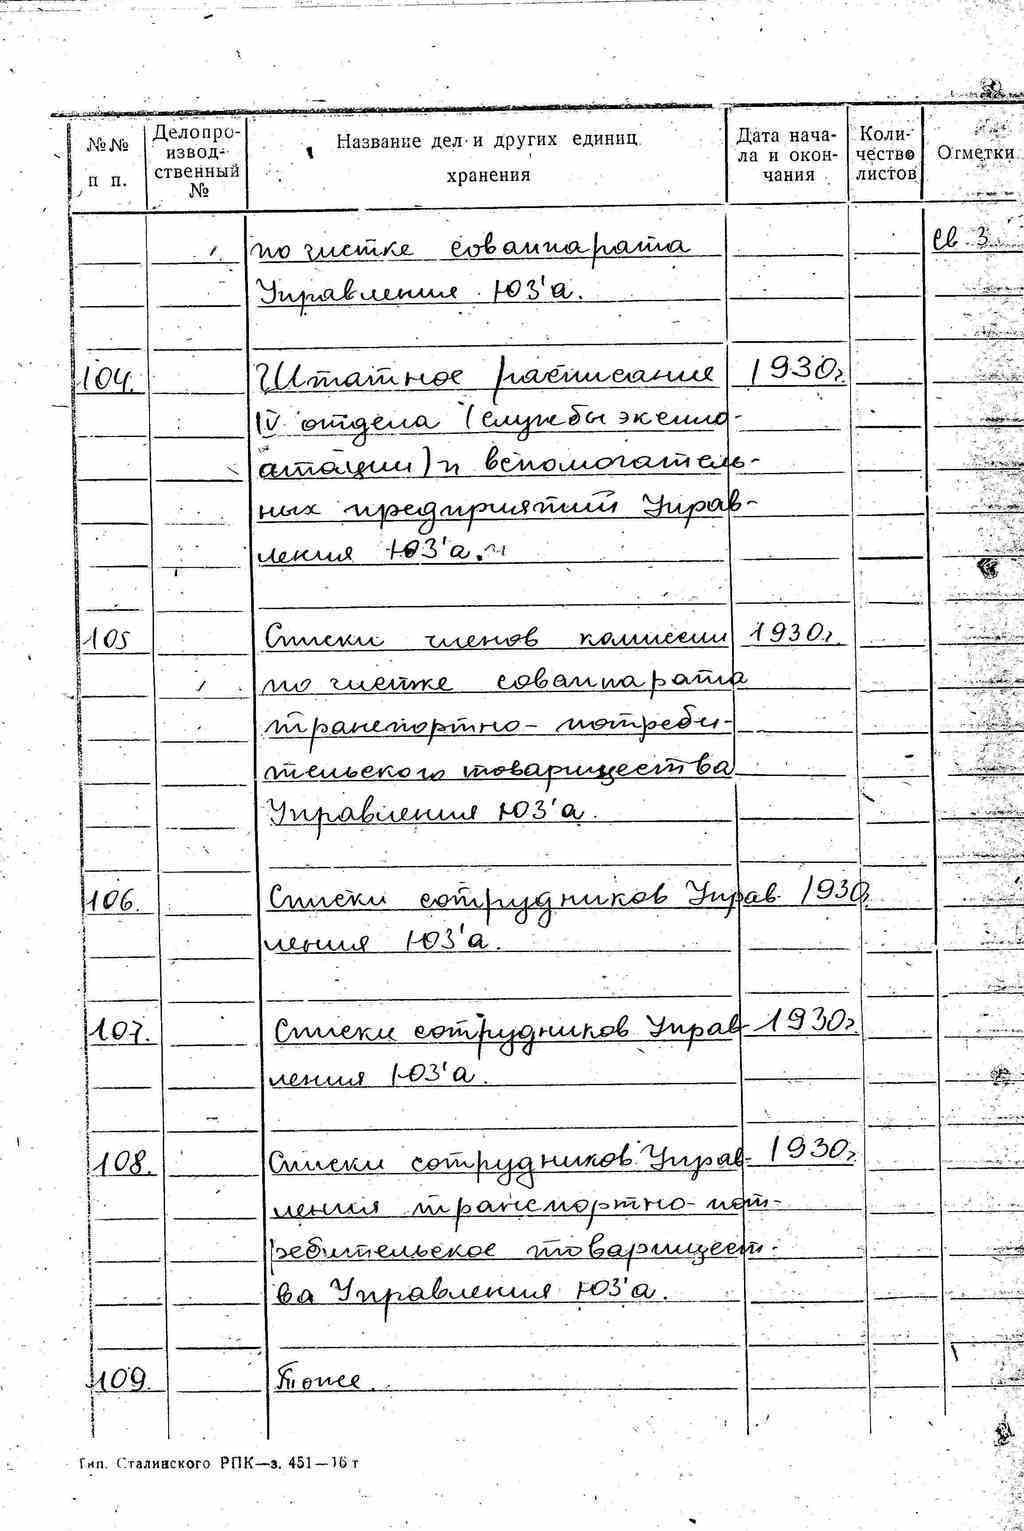 №№ п п.
Делопроизвод-ственный №
Название дел и других единиц хранения
Дата нача-ла и окон-чания
Коли-чество листов
Отметки
по чистке совапарата св. 3
Управления ЮЗ'а.
104. Штатное расписание 1930г.
IV отдела (службы эксплу-
атации) и вспомогатель-
ных предприятий Управ-
ления ЮЗ'а.
105 Списки членов комиссии 1930г.
по чистке совапарата
транспортно-потреби-
тельского товарищества
Управления ЮЗ'а.
106. Списки сотрудников Управ- 1930г.
ления ЮЗ'а.
107. Списки сотрудников Управ- 1930г.
ления ЮЗ'а.
108. Списки сотрудников Управ- 1930г.
ления транспортно-пот-
ребительское товарищест-
ва Управления ЮЗ'а.
109. Тоже.
Тип. Сталинского РПК—з. 451—16 т